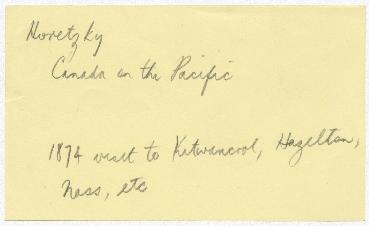 Horetzky
Canada on the Pacific
1874 visit to Kitwancool, Hazelton,
Nass, etc